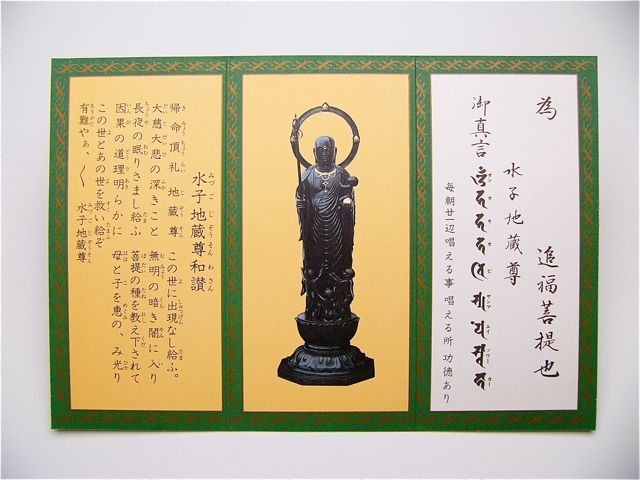 為 追福菩提也
水子地蔵尊
御真言
毎朝廿一辺唱える事 唱える所 功徳あり
水子地蔵尊和讃
帰命頂礼地蔵尊 この世に出現なし給ふ。
大慈大悲の深きこと 無明の暗き闇に入り
長夜の眠りさまし給ふ 菩提の種を教え下されて
因果の道理明らかに 母と子を恵の、み光り
この世とあの世を救い給ぞ
有難やぁ、〱 水子地蔵尊